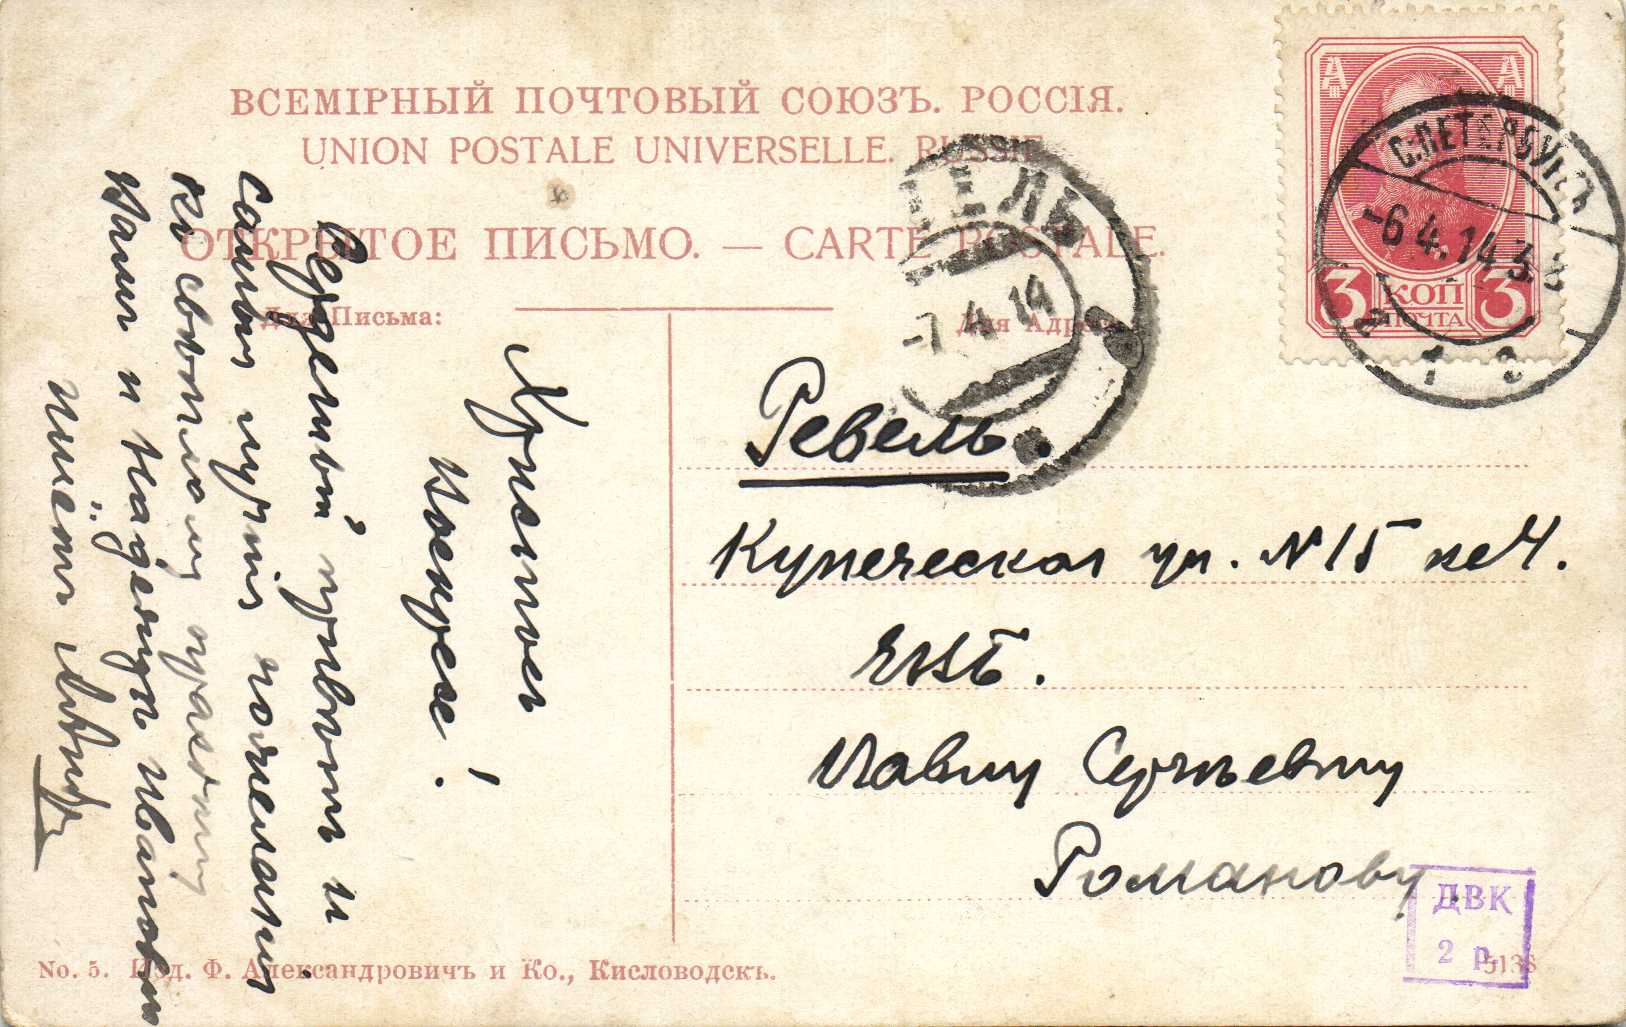 ВСЕМІРНЫЙ ПОЧТОВЫЙ СОЮЗЪ. РОССІЯ.
UNION POSTALE UNIVERSELLE. RUSSIE
ОТКРЫТОЕ ПИСЬМО. — CARTE POSTALE.
Для Письма:
Для Адреса
А А
3 КОП 3
ПОЧТА
С.ПЕТЕРБУРГЪ
-6 4.14.3
1 Э
ЕЛЬ
-7.4.14
Христосъ
Воскресе!
Сердечный привѣтъ и
самыя лучшія пожеланія
къ свѣтлому празднику
Вамъ и Надеждѣ Ивановнѣ
Ревель.
Купеческая ул. №15 кв 4.
ЕВБ.
Павлу Сергѣевичу
Романову
ДВК
2 р.
5138
No. 5. Изд. Ф. Александровичъ и Ко., Кисловодскъ.